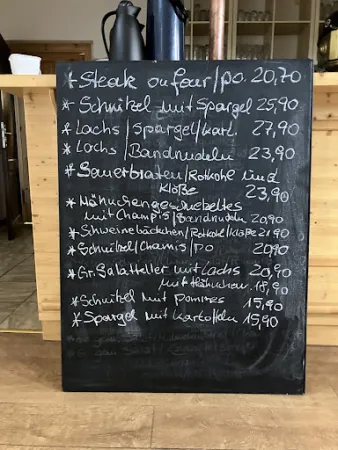 * Steak oufour/po. 20,70
* Schnitzel mit Spargel 25,90
* Lachs/Spargel/Kart. 27,90
* Lachs/Bandnudeln 23,90
* Sauerbraten/Rotkohl und
Klöße 23,90
* Hähnchengeschnetzeltes
mit Champis/Bandnudeln 20,90
* Schweinebäckchen/Rotkohl/Klöße 21,90
* Schnitzel/Chamis/po 20,90
* Gr. Salatteller mit Lachs 20,90
mit Hähnchen 18,90
* Schnitzel mit Pommes 15,90
* Spargel mit Kartoffeln 15,90